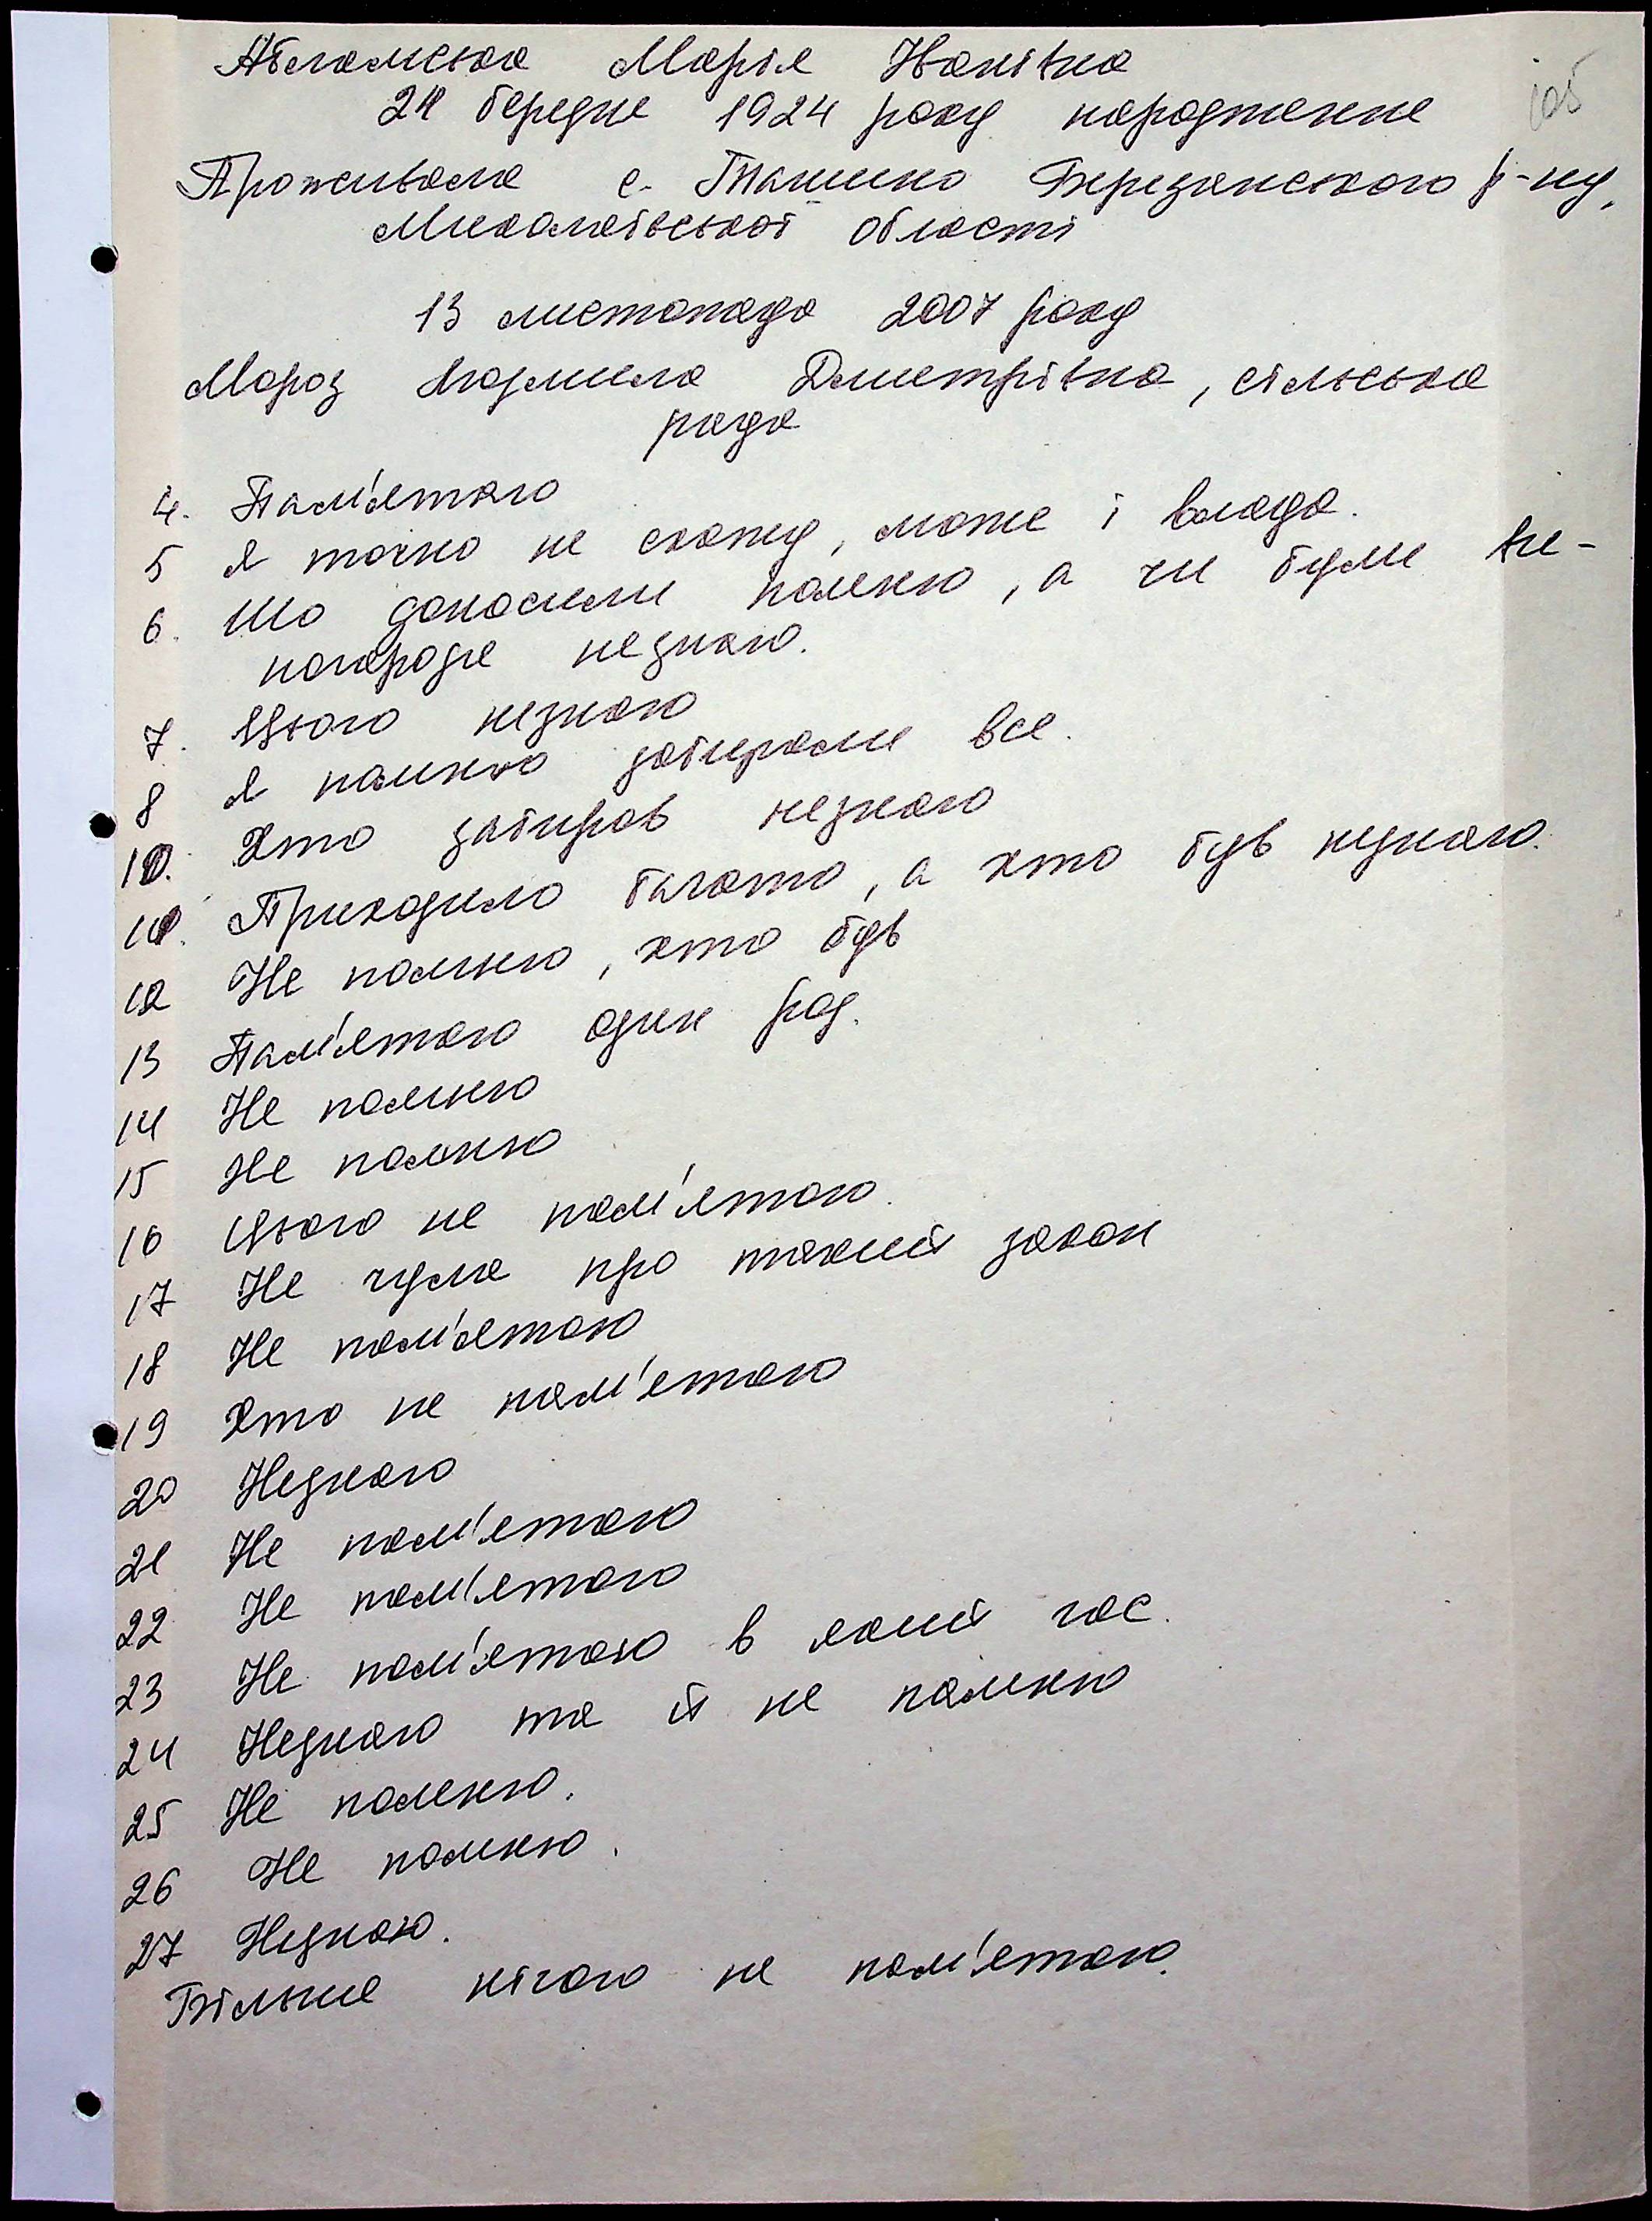 Абламська Марія Іванівна
24 березня 1924 року народження
105
Проживала с. Ташино Березанського р-ну,
Миколаївської області
13 листопада 2007 року
Мороз Людмила Дмитрівна, сільська
рада
4. Пам'ятаю
5 Я точно не скажу, може і влада.
6. Що доносили помню, а чи були ви-
нагороди незнаю.
7. Цього незнаю
8 Я помню забирали все.
10. Хто забирав незнаю
11. Приходило багато, а хто був незнаю.
12 Не помню, хто був
13 Пам'ятаю один год.
14 Не помню
15 Не помню
16 Цього не пам'ятаю.
17 Не чула про такий закон
18 Не пам'ятаю
19 Хто не пам'ятаю
20 Незнаю
21 Не пам'ятаю
22 Не пам'ятаю
23 Не пам'ятаю в який час.
24 Незнаю та й не помню
25 Не помню.
26 Не помню.
27 Незнаю.
Більше нічого не пам'ятаю.